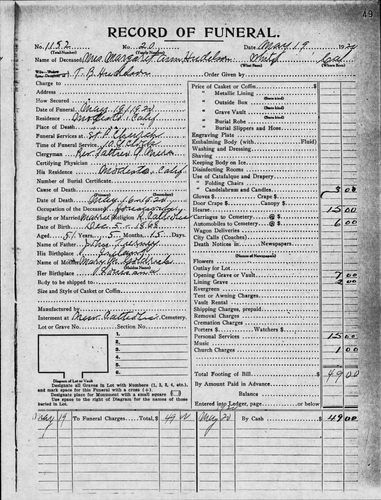 49
RECORD OF FUNERAL.
No. 1152 No. 20 Date May 19 1920
(Total Number) (Yearly Number)
Name of Deceased Mrs. Margaret Ann Hudelson White Cal
(What Race) (Where Born)
T. B. Hudelson Order Given by
Charge to
Address
How Secured
Date of Funeral May 19 1920
Residence Modesto, Calif.
Place of Death
Funeral Services at St. P. Church
Time of Funeral Service
Clergyman Rev. Father
Certifying Physician
His Residence Modesto, Calif.
Number of Burial Certificate
Cause of Death
Date of Death May 1920
Occupation of the Deceased Housewife
Single or Married Married Religion R. Catholic
Date of Birth Dec. 5 - 1868
Aged 51 Years 5 Months 15 Days
Name of Father John
His Birthplace Ireland
Name of Mother Mary
(Maiden Name)
Her Birthplace Louisiana
Body to be shipped to
Size and Style of Casket or Coffin
Manufactured by
Interment at New Catholic Cemetery
Lot or Grave No. Section No.
Diagram of Lot or Vault
Designate all Graves in Lot with Numbers (1, 2, 3, 4, etc.), and mark space for this Funeral with a cross (+).
Designate place for Monument with a small square
Use space to the right of Diagram for the names of those buried in Lot.
Price of Casket or Coffin
" Metallic Lining
(State kind)
" Outside Box
(State kind)
" Grave Vault
(State kind)
" Burial Robe
(State kind)
" Burial Slippers and Hose
Engraving Plate
Embalming Body (with Fluid)
Washing and Dressing
Shaving
Keeping Body on Ice
Disinfecting Rooms
Use of Catafalque and Drapery
" Folding Chairs
" Candelabrum and Candles 3 00
Gloves $ Crape $
Door Crape $
Hearse 15 00
Carriages to Cemetery @ $
Automobiles to Cemetery @ $ 6 00
Wagon Deliveries
City Calls (Coaches)
Death Notices in Newspapers
(Names of Newspapers)
Flowers
Outlay for Lot
Opening Grave or Vault 7 00
Lining Grave 2 00
Evergreen
Tent or Awning Charges
Vault Rental
Shipping Charges, prepaid
Removal Charges
Cremation Charges
Porters $ Watchers $
Personal Services 15 00
Music
Church Charges 1 00
Total Footing of Bill $ 49 00
By Amount Paid in Advance
Balance
Entered into Ledger, page or below
1920
May 19 To Funeral Charges Total, $ 49 00 May 20 By Cash $ 49 00